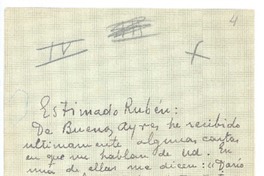 4
IV
Estimado Rubén:
De Buenos Ayres he recibido
ultimamente algunas cartas
en que me hablan de Ud. En
una de ellas me dicen: "Darío